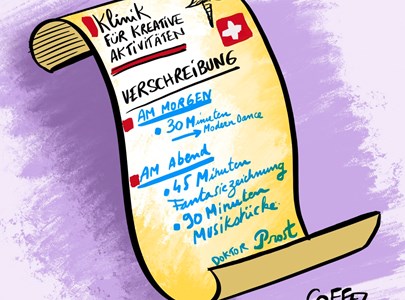 Klinik
FÜR KREATIVE
AKTIVITÄTEN
VERSCHREIBUNG
AM MORGEN
• 30 Minuten
→ Modern Dance
AM Abend
• 45 Minuten
Fantasiezeichnung
• 90 Minuten
Musikstücke
DOKTOR Prost